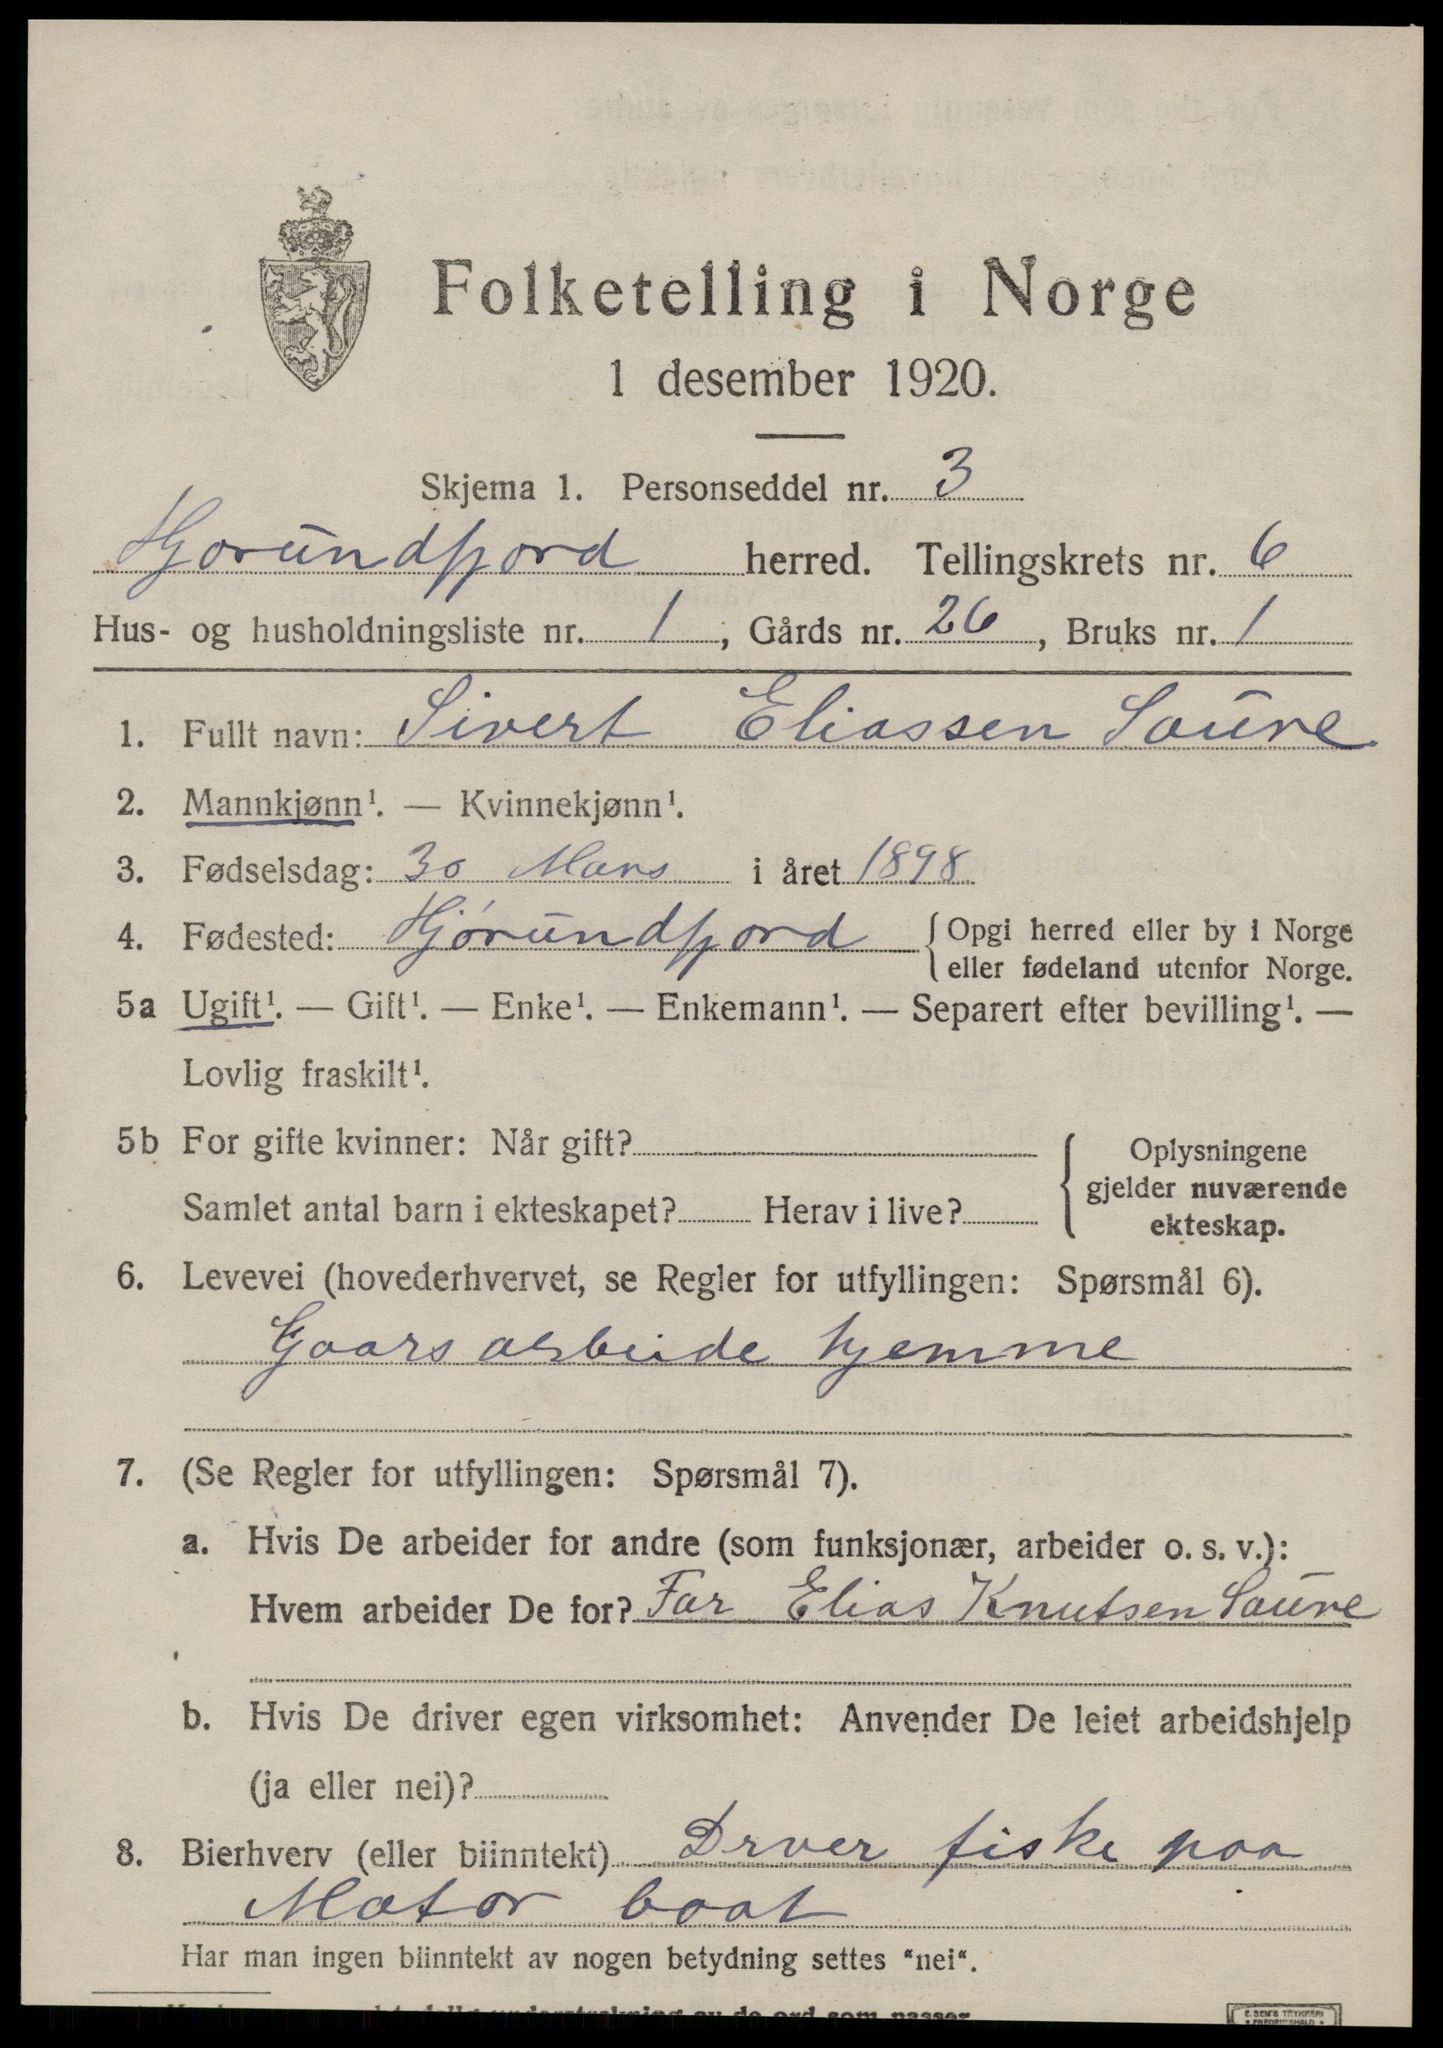 Folketelling i Norge
1 desember 1920.
Skjema 1. Personseddel nr. 3
Hjorundfjord herred. Tellingskrets nr. 6
Hus- og husholdningsliste nr. 1, Gårds nr. 26, Bruks nr. 1
1. Fullt navn: Sivert Eliassen Saure
2. Mannkjønn¹. — Kvinnekjønn¹.
3. Fødselsdag: 30 Mars i året 1898
4. Fødested: Hjørundfjord { Opgi herred eller by i Norge
eller fødeland utenfor Norge.
5a Ugift¹. — Gift¹. — Enke¹. — Enkemann¹. — Separert efter bevilling¹. —
Lovlig fraskilt¹.
5b For gifte kvinner: Når gift?
Samlet antal barn i ekteskapet? Herav i live?
{ Oplysningene
gjelder nuværende
ekteskap.
6. Levevei (hovederhvervet, se Regler for utfyllingen: Spørsmål 6).
Gaars arbeide hjemme
7. (Se Regler for utfyllingen: Spørsmål 7).
a. Hvis De arbeider for andre (som funksjonær, arbeider o. s. v.):
Hvem arbeider De for? Far Elias Knutsen Saure
b. Hvis De driver egen virksomhet: Anvender De leiet arbeidshjelp
(ja eller nei)?
8. Bierhverv (eller biinntekt) Drver fiske paa
Motor baat
Har man ingen biinntekt av nogen betydning settes "nei".